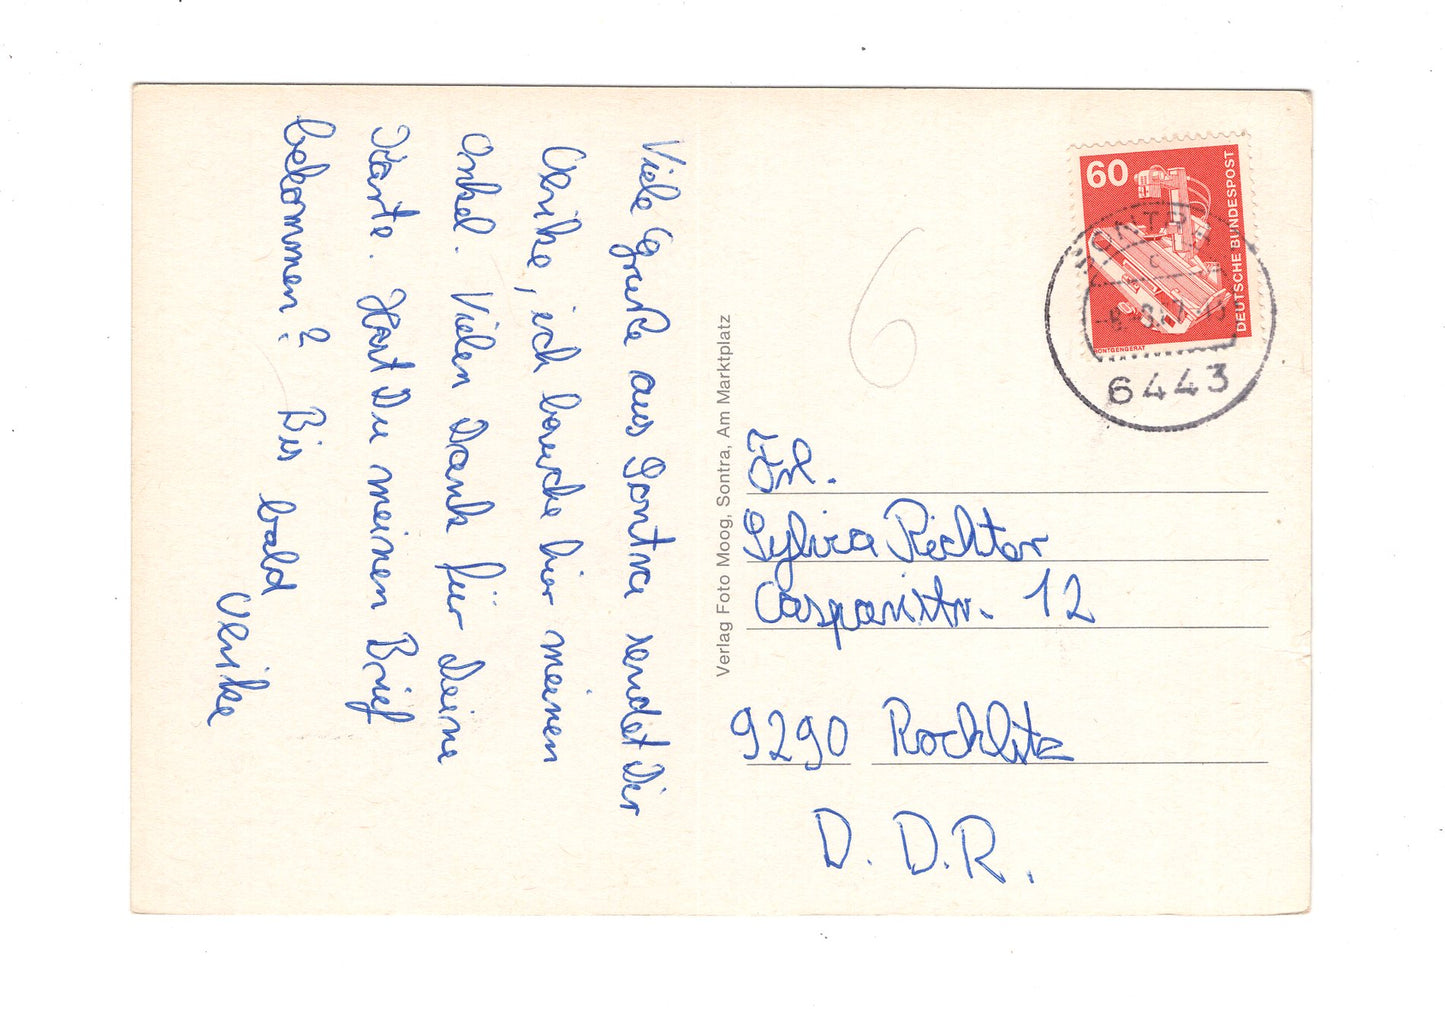 Viele Grüße aus Sontra sendet Dir
Ulrike, ich besuche hier meinen
Onkel. Vielen Dank für Deine
Karte. Hast Du meinen Brief
bekommen? Bis bald
Ulrike
Verlag Foto Moog, Sontra, Am Marktplatz
6
60
DEUTSCHE BUNDESPOST
RÖNTGENGERÄT
SONTRA
c
6443
Frl.
Sylvia Richter
Casparistr. 12
9290 Rochlitz
D.D.R.